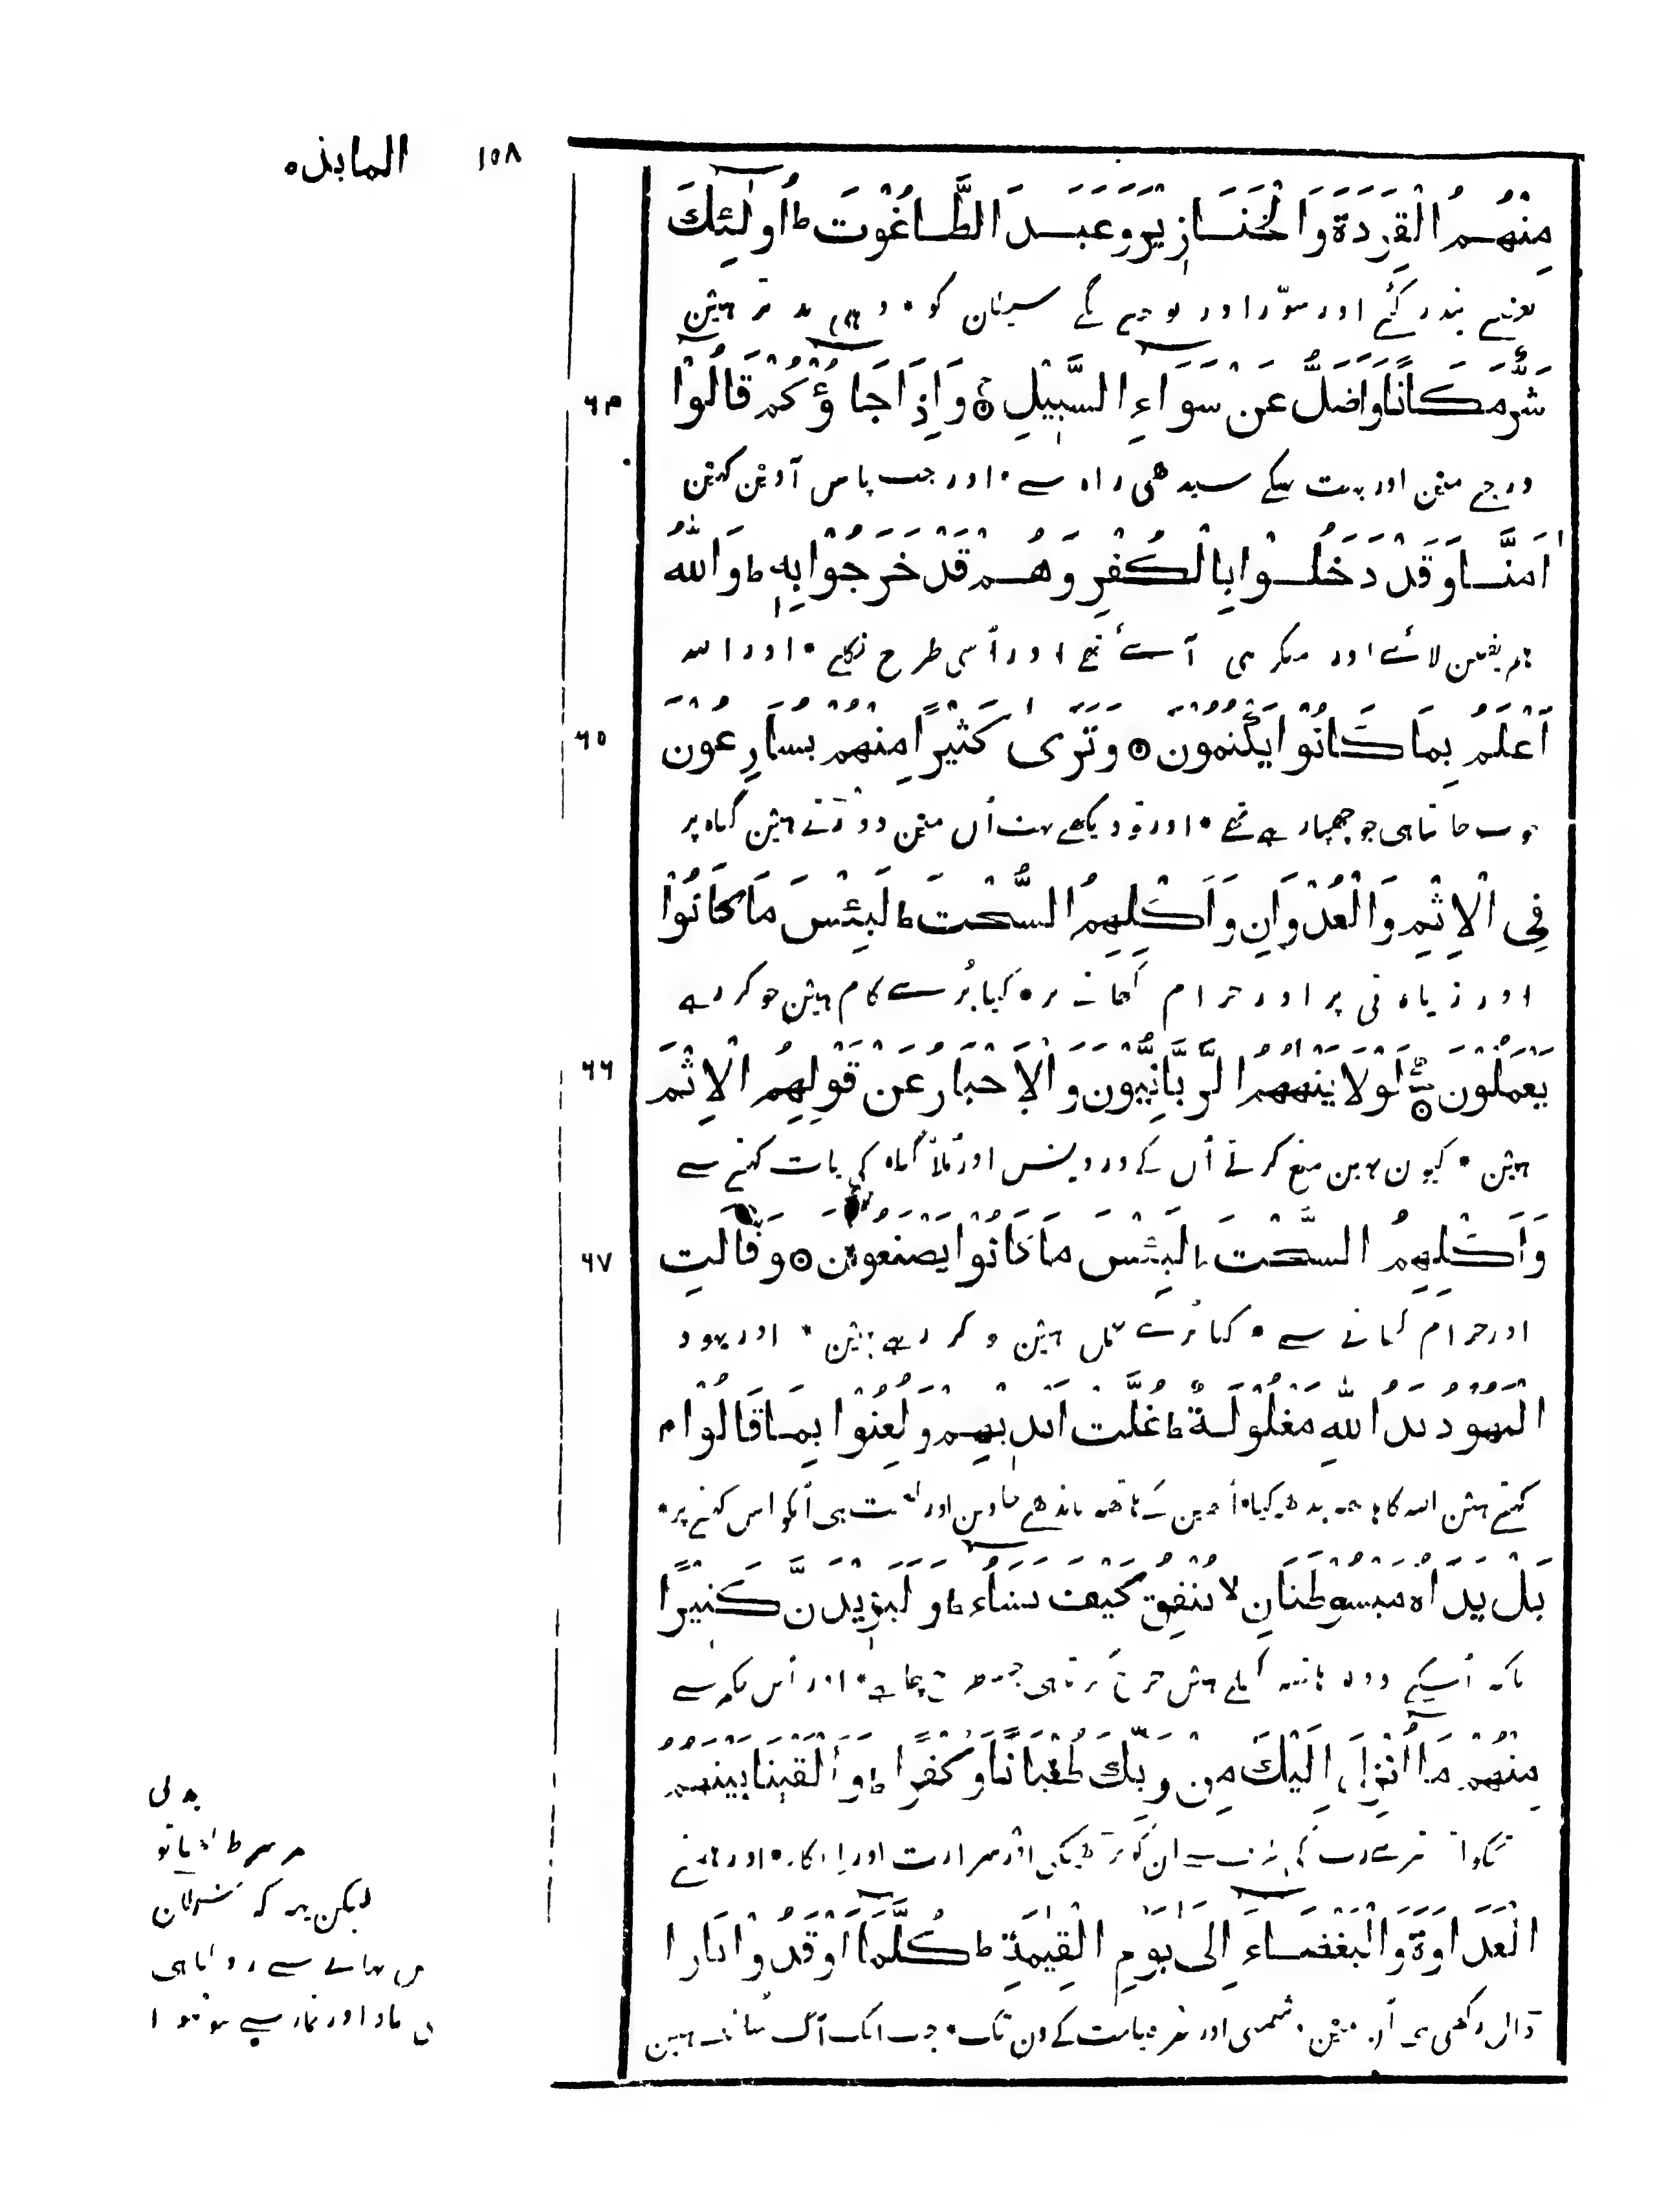 ١٥٨ المایدہ
مِنْهُمُ الْقِرَدَةَ وَالْخَنَازِيْرَ وَعَبَدَ الطَّاغُوْتَ ط اُولٰٓئِكَ
بعضے بندر کئے اور سوّر اور پوجنے لگے شیطان کو * وہی بدتر ہیٛں
شَرٌّ مَكَانًا وَاَضَلُّ عَنْ سَوَآءِ السَّبِيْلِ ۞ وَاِذَا جَآؤُكُمْ قَالُوْٓا ٦٤
درجے میٛں اور بہت بہکے سیدھی راہ سے * اور جب پاس آویٛں کہیٛں
اٰمَنَّا وَقَدْ دَخَلُوْا بِالْكُفْرِ وَهُمْ قَدْ خَرَجُوْا بِهٖ ط وَاللّٰهُ
ہم یقین لائے اور منکر ہی آئے تھے اور اُسی طرح نکلے * اور اللہ
اَعْلَمُ بِمَا كَانُوْا يَكْتُمُوْنَ ۞ وَتَرٰى كَثِيْرًا مِنْهُمْ يُسَارِعُوْنَ ٦٥
جو چھپا رہے تھے * اور تو دیکھے بہت اُن میٛں دوڑتے ہیٛں گناہ پر
فِى الْاِثْمِ وَالْعُدْوَانِ وَاَكْلِهِمُ السُّحْتَ ط لَبِئْسَ مَا كَانُوْا
اور زیادتی پر اور حرام کھانے پر * کیا بُرے کام ہیٛں جو کر رہے
يَعْمَلُوْنَ ۞ لَوْلَا يَنْهٰهُمُ الرَّبَّانِيُّوْنَ وَالْاَحْبَارُ عَنْ قَوْلِهِمُ الْاِثْمَ ٦٦
ہیٛں * کیوں نہیں منع کرتے اُن کے درویش اور مُلّا گناہ کی بات کہنے سے
وَاَكْلِهِمُ السُّحْتَ ط لَبِئْسَ مَا كَانُوْا يَصْنَعُوْنَ ۞ وَقَالَتِ ٦٧
اور حرام کھانے سے * کیا بُرے عمل ہیٛں کر رہے ہیٛں * اور یہود
الْيَهُوْدُ يَدُ اللّٰهِ مَغْلُوْلَةٌ ط غُلَّتْ اَيْدِيْهِمْ وَلُعِنُوْا بِمَا قَالُوْا م
کہتے ہیٛں اللہ کا ہاتھ بندھ گیا * اُنھیں کے ہاتھ باندھے جاویں اور لعنت ہی اُنکو اس کہنے پر *
بَلْ يَدَاهُ مَبْسُوْطَتَانِ لا يُنْفِقُ كَيْفَ يَشَآءُ ط وَلَيَزِيْدَنَّ كَثِيْرًا
بلکہ اُسکے دونو ہاتھ کھلے ہیٛں خرچ کرتا ہی جسطرح چاہے * اور
مِنْهُمْ مَآ اُنْزِلَ اِلَيْكَ مِنْ رَبِّكَ طُغْيَانًا وَكُفْرًا ط وَاَلْقَيْنَا بَيْنَهُمُ
تجکو اترا تیرے رب کی طرف سے ان کو بڑھیگی اور شرارت اور انکار * اور ہمنے
الْعَدَاوَةَ وَالْبَغْضَآءَ اِلٰى يَوْمِ الْقِيٰمَةِ ط كُلَّمَآ اَوْقَدُوْا نَارًا
ڈال رکھی ہے اُن میٛں دشمنی اور بیر قیامت کے دن تک * جب ایک آگ سلگاتے ہیں
لیکن یہ کہ